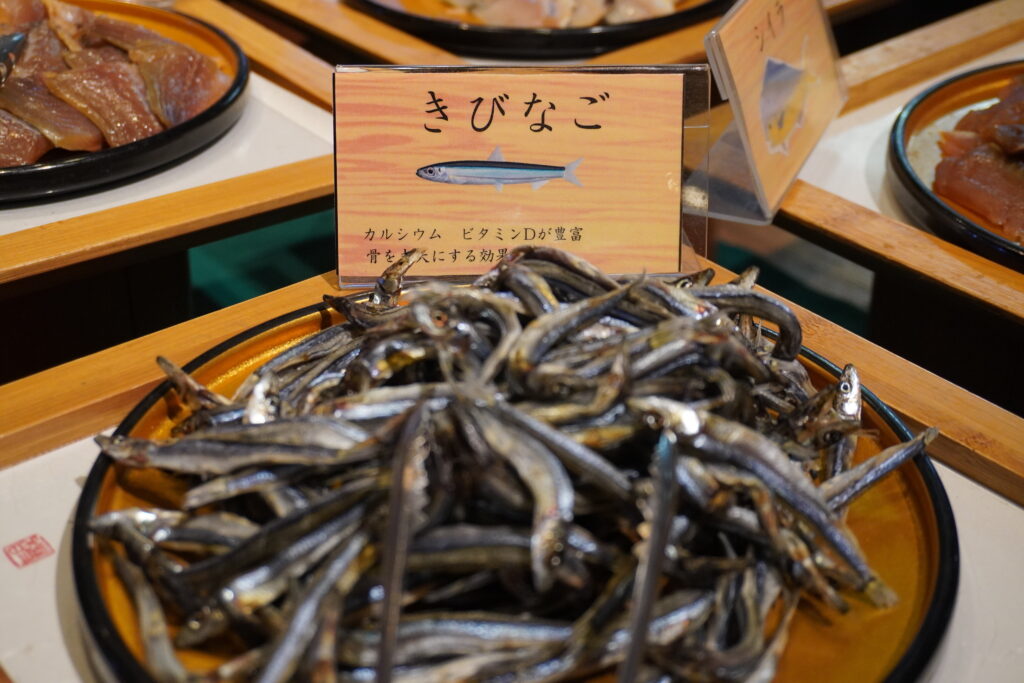 きびなご
カルシウム ビタミンDが豊富
骨を丈夫にする効果
シイラ